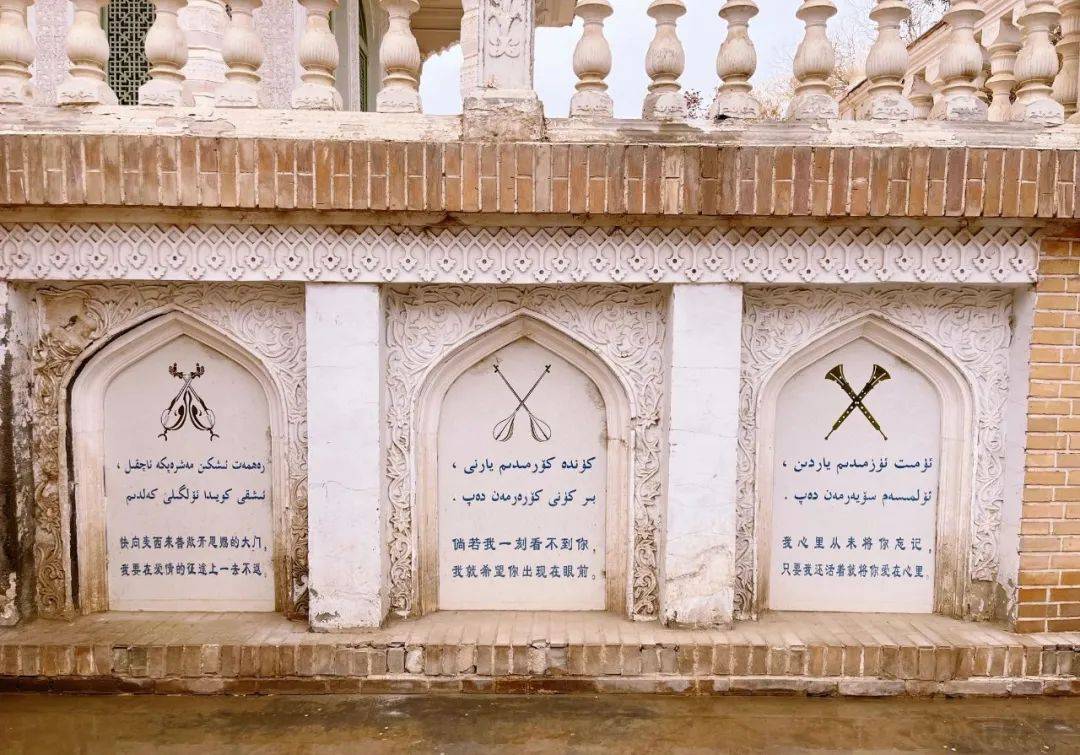 رەھمەت ئىشكىن مەشرەپكە ئاچقىل ،
ئىشقى كويىدا ئۆلگىلى كەلدىم
快向麦西来普敞开恩赐的大门，
我要在爱情的征途上一去不返。
كۈندە كۆرمىدىم يارنى ،
بىر كۈنى كۆرەرمەن دەپ .
倘若我一刻看不到你，
我就希望你出现在眼前。
ئۈمىت ئۈزمىدىم ياردىن ،
ئۆلمىسەم سۆيەرمەن دەپ .
我心里从未将你忘记，
只要我还活着就将你爱在心里。